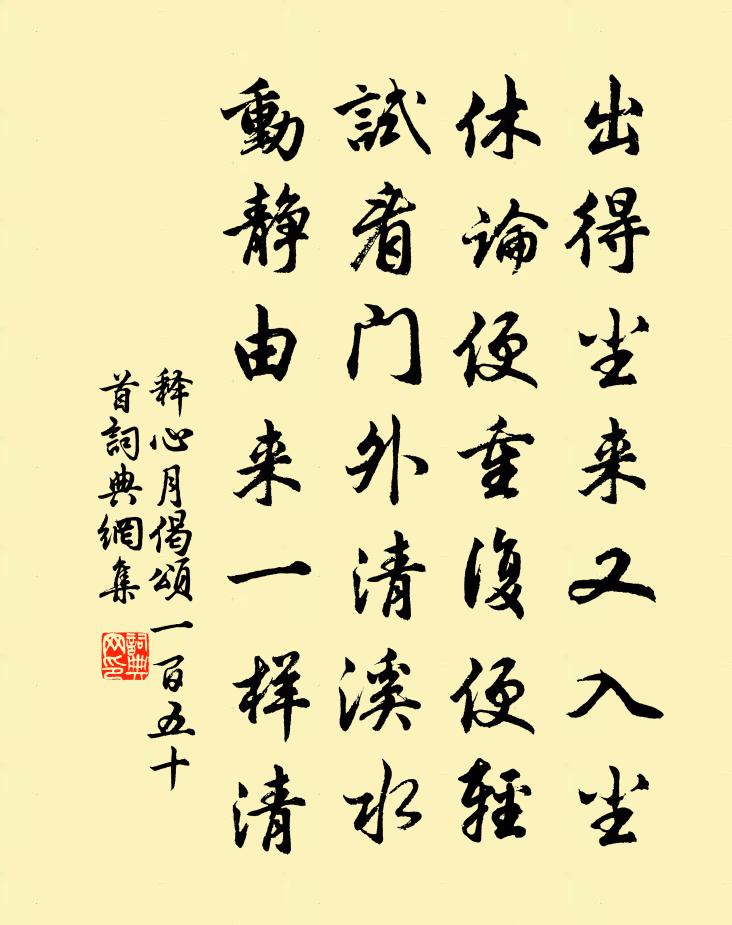 出得尘来又入尘
休論便重復便輕
試看门外清溪水
動静由来一样清
释心月偈頌一百五十
首詞典網集
詞典网印